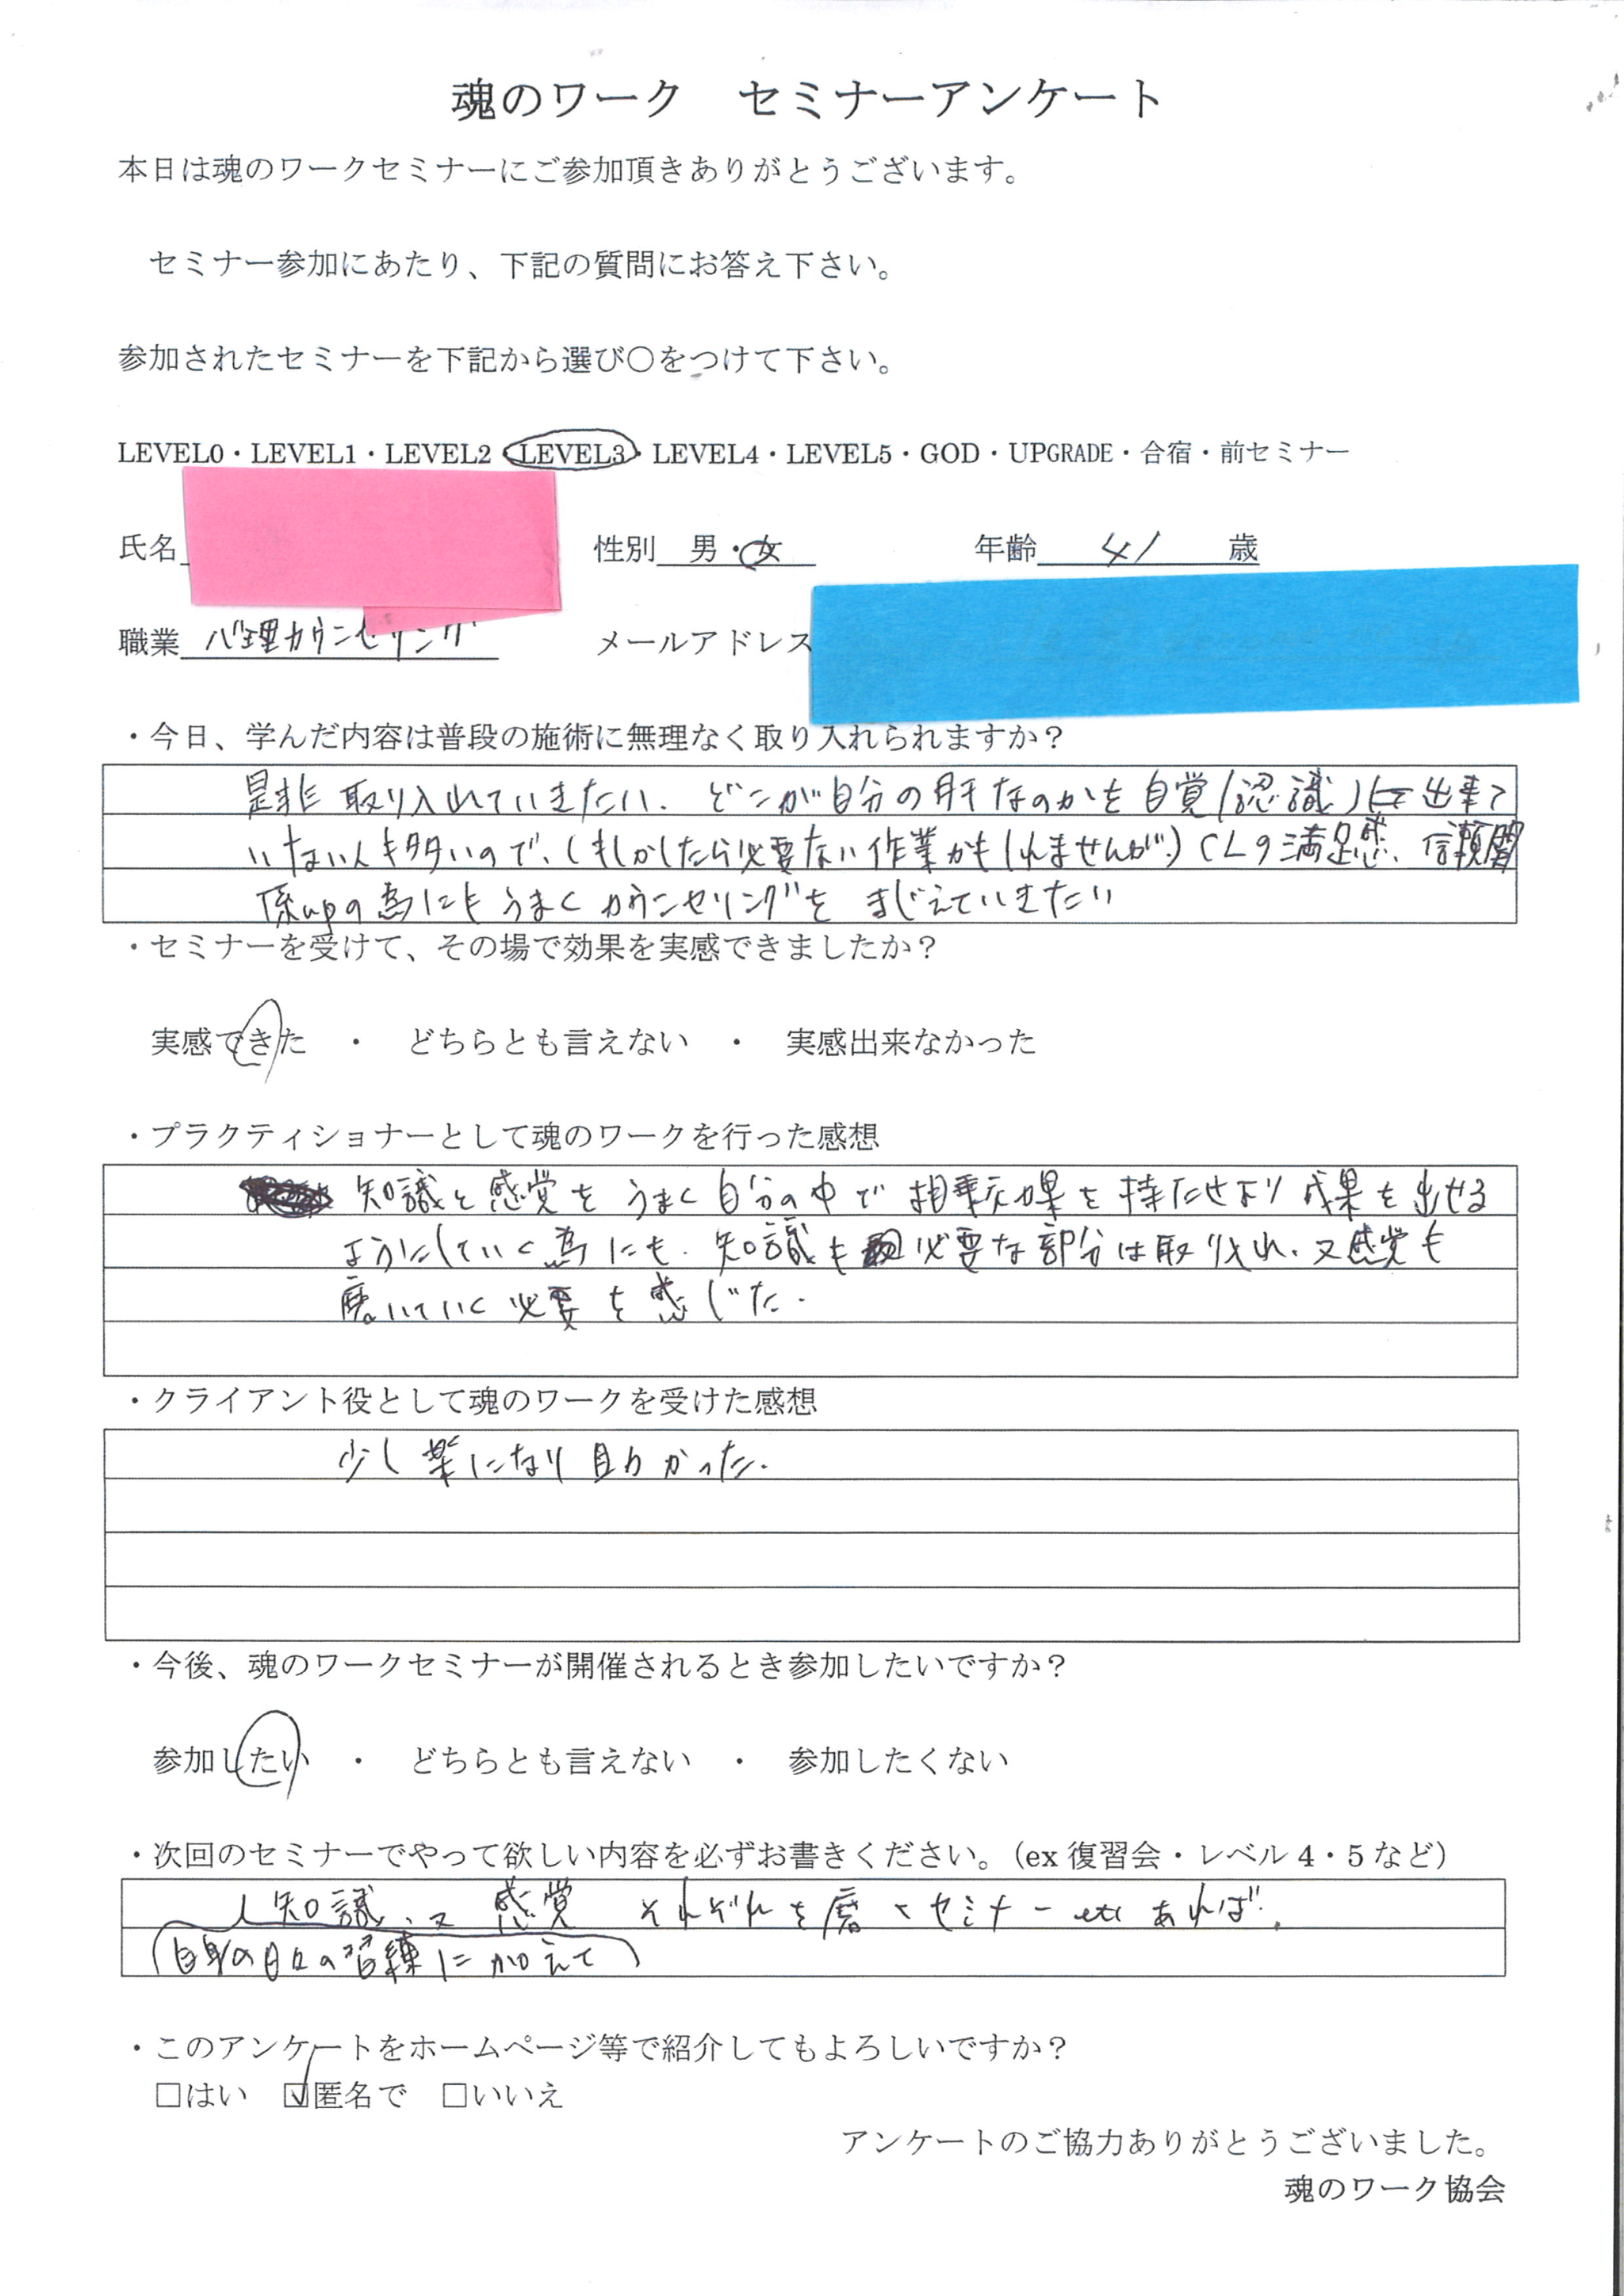 魂のワーク　セミナーアンケート
本日は魂のワークセミナーにご参加頂きありがとうございます。
セミナー参加にあたり、下記の質問にお答え下さい。
参加されたセミナーを下記から選び〇をつけて下さい。
LEVEL0・LEVEL1・LEVEL2・LEVEL3・LEVEL4・LEVEL5・GOD・UPGRADE・合宿・前セミナー
氏名　性別　男・女　年齢　41　歳
職業　心理カウンセリング　メールアドレス
・今日、学んだ内容は普段の施術に無理なく取り入れられますか？
是非取り入れていきたい。どこが自分の肝なのかを自覚(認識)出来て
いない人も多いので、(もしかしたら必要ない作業かもしれませんが、)CLの満足感、信頼関
係upの為にもうまくカウンセリングをまじえていきたい
・セミナーを受けて、その場で効果を実感できましたか？
実感できた　・　どちらとも言えない　・　実感出来なかった
・プラクティショナーとして魂のワークを行った感想
知識と感覚をうまく自分の中で相乗効果を持たせより成果を出せる
ようにしていく為にも、知識も必要な部分は取り入れ、又感覚も
磨いていく必要を感じた。
・クライアント役として魂のワークを受けた感想
少し楽になり助かった。
・今後、魂のワークセミナーが開催されるとき参加したいですか？
参加したい　・　どちらとも言えない　・　参加したくない
・次回のセミナーでやって欲しい内容を必ずお書きください。（ex 復習会・レベル 4・5 など）
知識、又 感覚 それぞれを磨くセミナー etc あれば。
(自身の日々の習練に加えて)
・このアンケートをホームページ等で紹介してもよろしいですか？
□はい　☑匿名で　□いいえ
アンケートのご協力ありがとうございました。
魂のワーク協会